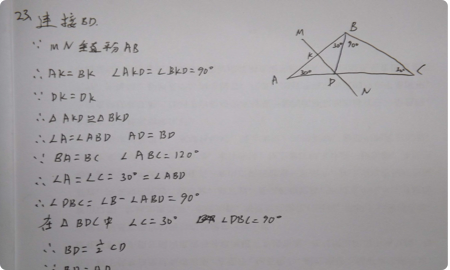 23. 连接BD.
∵ MN垂直平分AB
∴ AK=BK ∠AKD=∠BKD=90°
∵ DK=DK
∴ △AKD≌△BKD
∴ ∠A=∠ABD AD=BD
∵ BA=BC ∠ABC=120°
∴ ∠A=∠C=30°=∠ABD
∴ ∠DBC=∠B-∠ABD=90°
在△BDC中 ∠C=30° ∠DBC=90°
∴ BD=½CD
∵ BD=AD
M
B
K
30° 90°
A
30°
D
N
30°
C